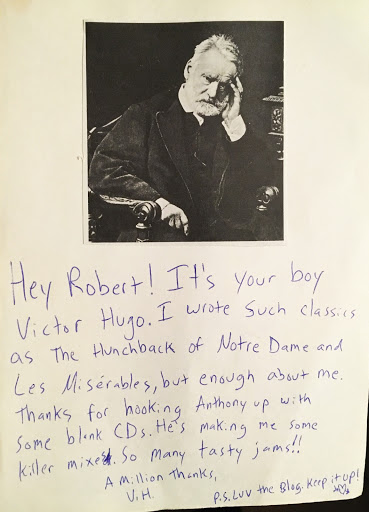 Hey Robert! It's your boy
Victor Hugo. I wrote such classics
as The Hunchback of Notre Dame and
Les Misérables, but enough about me.
Thanks for hooking Anthony up with
some blank CDs. He's making me some
killer mixes. So many tasty jams!!
A Million Thanks,
V.H.
P.S. Luv the Blog. Keep it up!